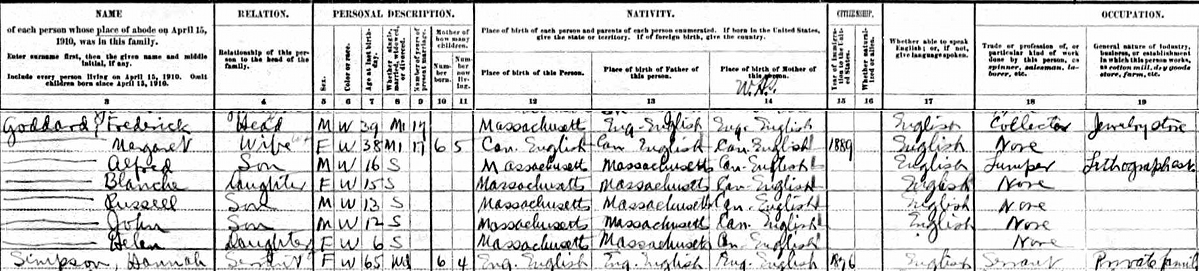 NAME RELATION. PERSONAL DESCRIPTION. NATIVITY. CITIZENSHIP. OCCUPATION.
of each person whose place of abode on April 15, 1910, was in this family.
Enter surname first, then the given name and middle initial, if any.
Include every person living on April 15, 1910. Omit children born since April 15, 1910.
Relationship of this person to the head of the family.
Sex.
Color or race.
Age at last birthday.
Whether single, married, widowed, or divorced.
Number of years of present marriage.
Mother of how many children.
Number born.
Number now living.
Place of birth of each person and parents of each person enumerated. If born in the United States, give the state or territory. If of foreign birth, give the country.
Place of birth of this Person.
Place of birth of Father of this person.
Place of birth of Mother of this person.
Year of immigration to the United States.
Whether naturalized or alien.
Whether able to speak English; or, if not, give language spoken.
Trade or profession of, or particular kind of work done by this person, as spinner, salesman, laborer, etc.
General nature of industry, business, or establishment in which this person works, as cotton mill, dry goods store, farm, etc.
3 4 5 6 7 8 9 10 11 12 13 14 15 16 17 18 19
Goddard Frederick Head M W 39 M1 17 Massachusetts Eng. English Eng. English English Collector Jewelry store
Margaret Wife F W 38 M1 17 6 5 Can. English Can. English Can. English 1889 English None
Alfred Son M W 16 S Massachusetts Massachusetts Can. English English Lithograph est.
Blanche Daughter F W 15 S Massachusetts Massachusetts Can. English English None
Russell Son M W 13 S Massachusetts Massachusetts Can. English English None
John Son M W 12 S Massachusetts Massachusetts Can. English English None
Helen Daughter F W 6 S Massachusetts Massachusetts Can. English None
Simpson, Hannah Servant F W 65 6 4 Eng. English Eng. English Eng. English 1876 English Servant Private family